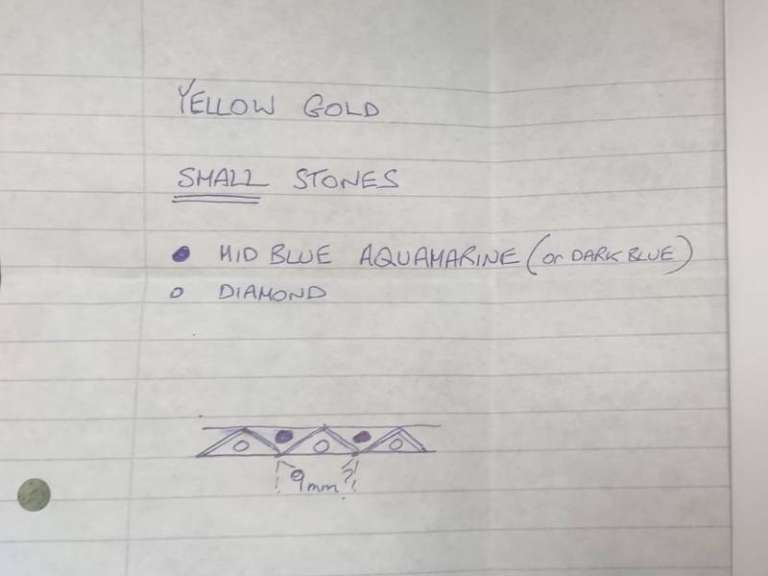 YELLOW GOLD
SMALL STONES
MID BLUE AQUAMARINE (or DARK BLUE)
DIAMOND
9mm?